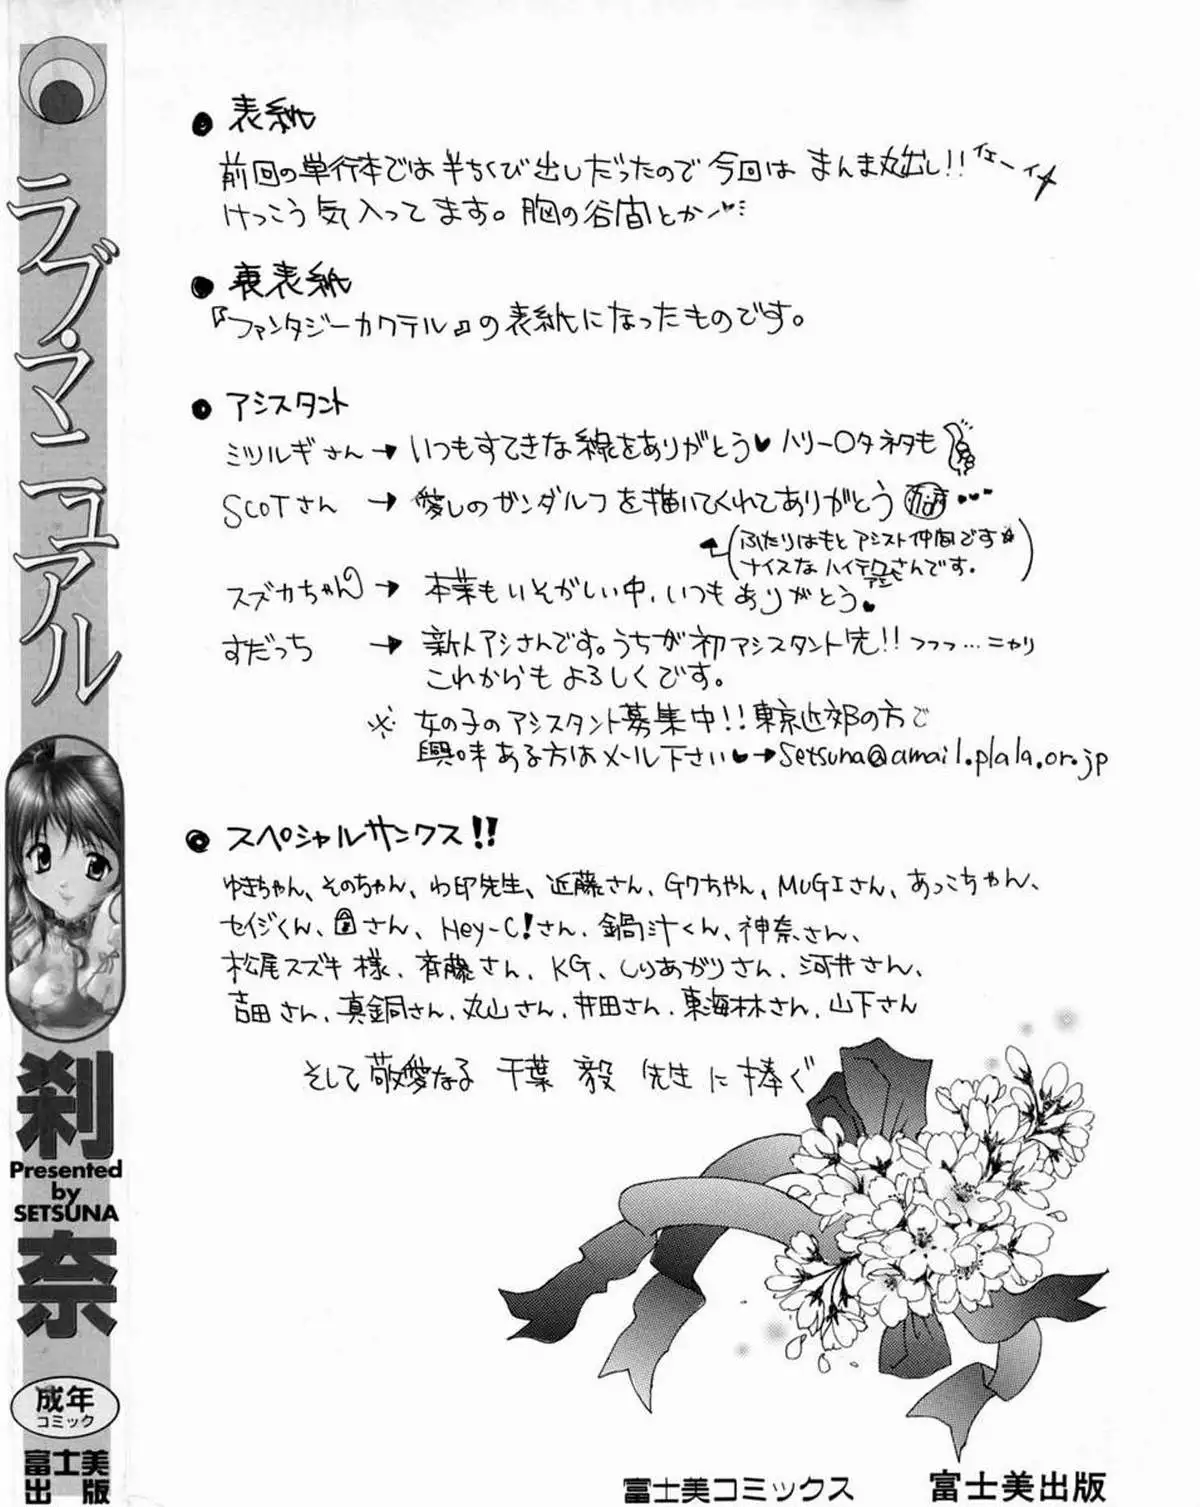 ラブ・マニュアル
刹奈
Presented
by
SETSUNA
成年
コミック
富士美
出版
● 表紙
前回の単行本では半ちくび出しだったので今回は まんま丸出し!! イェーイ
けっこう気入ってます。胸の谷間とか
● 裏表紙
『ファンタジーカクテル』の表紙になったものです。
● アシスタント
ミツルギさん→いつもすてきな線をありがとう♥ハリー○タネタも
SCOTさん → 愛しのガンダルフを描いてくれてありがとう
(ふたりはもとアシスト仲間です☆
ナイスなハイテクアシさんです。)
スズカちゃん → 本業もいそがしい中、いつもありがとう♥
すだっち → 新人アシさんです。うちが初アシスタント先!! フフフ…ニヤリ
これからもよろしくです。
※ 女の子のアシスタント募集中!! 東京近郊の方で
興味ある方はメール下さい♥→setsuna@amail.plala.or.jp
● スペシャルサンクス!!
ゆきちゃん、そのちゃん、わ印先生、近藤さん、Gクちゃん、MUGIさん、あっこちゃん、
セイジくん、さん、Hey-C!さん、鍋汁くん、神奈さん、
松尾スズキ様、斉藤さん、KG、しりあがりさん、河井さん、
吉田さん、真鍋さん、丸山さん、井田さん、東海林さん、山下さん
そして敬愛なる 千葉 毅 先生に捧ぐ
富士美コミックス 富士美出版